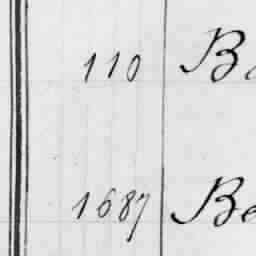 110 B
1687 Be